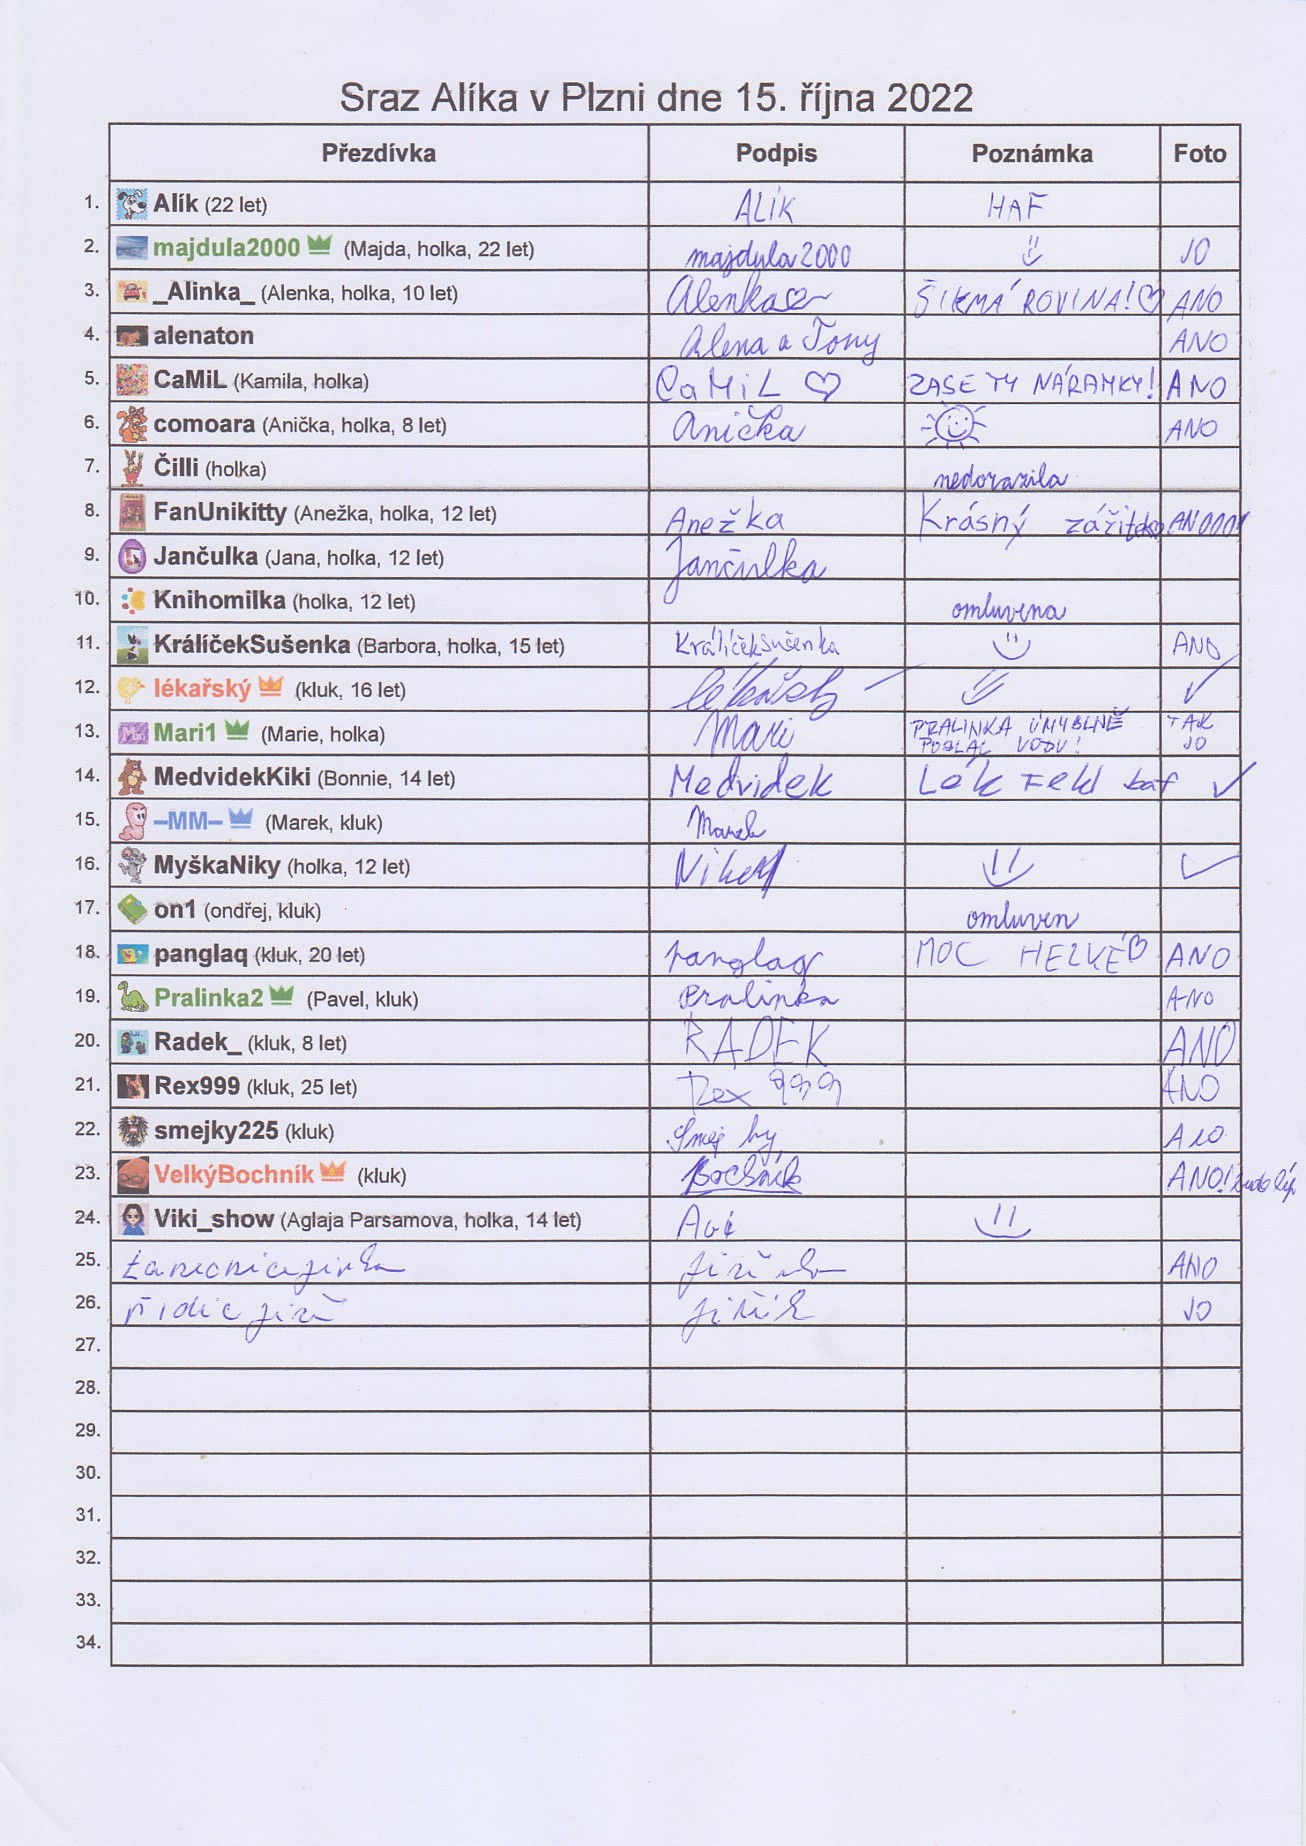 Sraz Alíka v Plzni dne 15. října 2022
Přezdívka Podpis Poznámka Foto
1. Alík (22 let) ALÍK HAF
2. majdula2000 (Majda, holka, 22 let) majdula2000 JO
3. _Alinka_ (Alenka, holka, 10 let) Alenka ŠIKMÁ ROVINA! ANO
4. alenaton Alena a Tony ANO
5. CaMiL (Kamila, holka) CaMiL ZASE TY NÁRAMKY! ANO
6. comoara (Anička, holka, 8 let) Anička ANO
7. Čilli (holka) nedorazila
8. FanUnikitty (Anežka, holka, 12 let) Anežka Krásný zážitek ANOOO!
9. Jančulka (Jana, holka, 12 let) Jančulka
10. Knihomilka (holka, 12 let) omluvena
11. KrálíčekSušenka (Barbora, holka, 15 let) KrálíčekSušenka ANO
12. lékařský (kluk, 16 let) lékařský ✓
13. Mari1 (Marie, holka) Mari PRALINKA ÚMYSLNĚ TAK
VODU! JO
14. MedvidekKiki (Bonnie, 14 let) Medvidek Lék řekl ✓
15. –MM– (Marek, kluk) Marek
16. MyškaNiky (holka, 12 let) ✓
17. on1 (ondřej, kluk) omluven
18. panglaq (kluk, 20 let) panglaq MOC HEZKÉ ANO
19. Pralinka2 (Pavel, kluk) Pralinka ANO
20. Radek_ (kluk, 8 let) RADEK ANO
21. Rex999 (kluk, 25 let) Rex 999 ANO
22. smejky225 (kluk) ANO
23. VelkýBochník (kluk) Bochník ANO!
24. Viki_show (Aglaja Parsamova, holka, 14 let)
25. ANO
26. řidič jiří jiřík JO
27.
28.
29.
30.
31.
32.
33.
34.